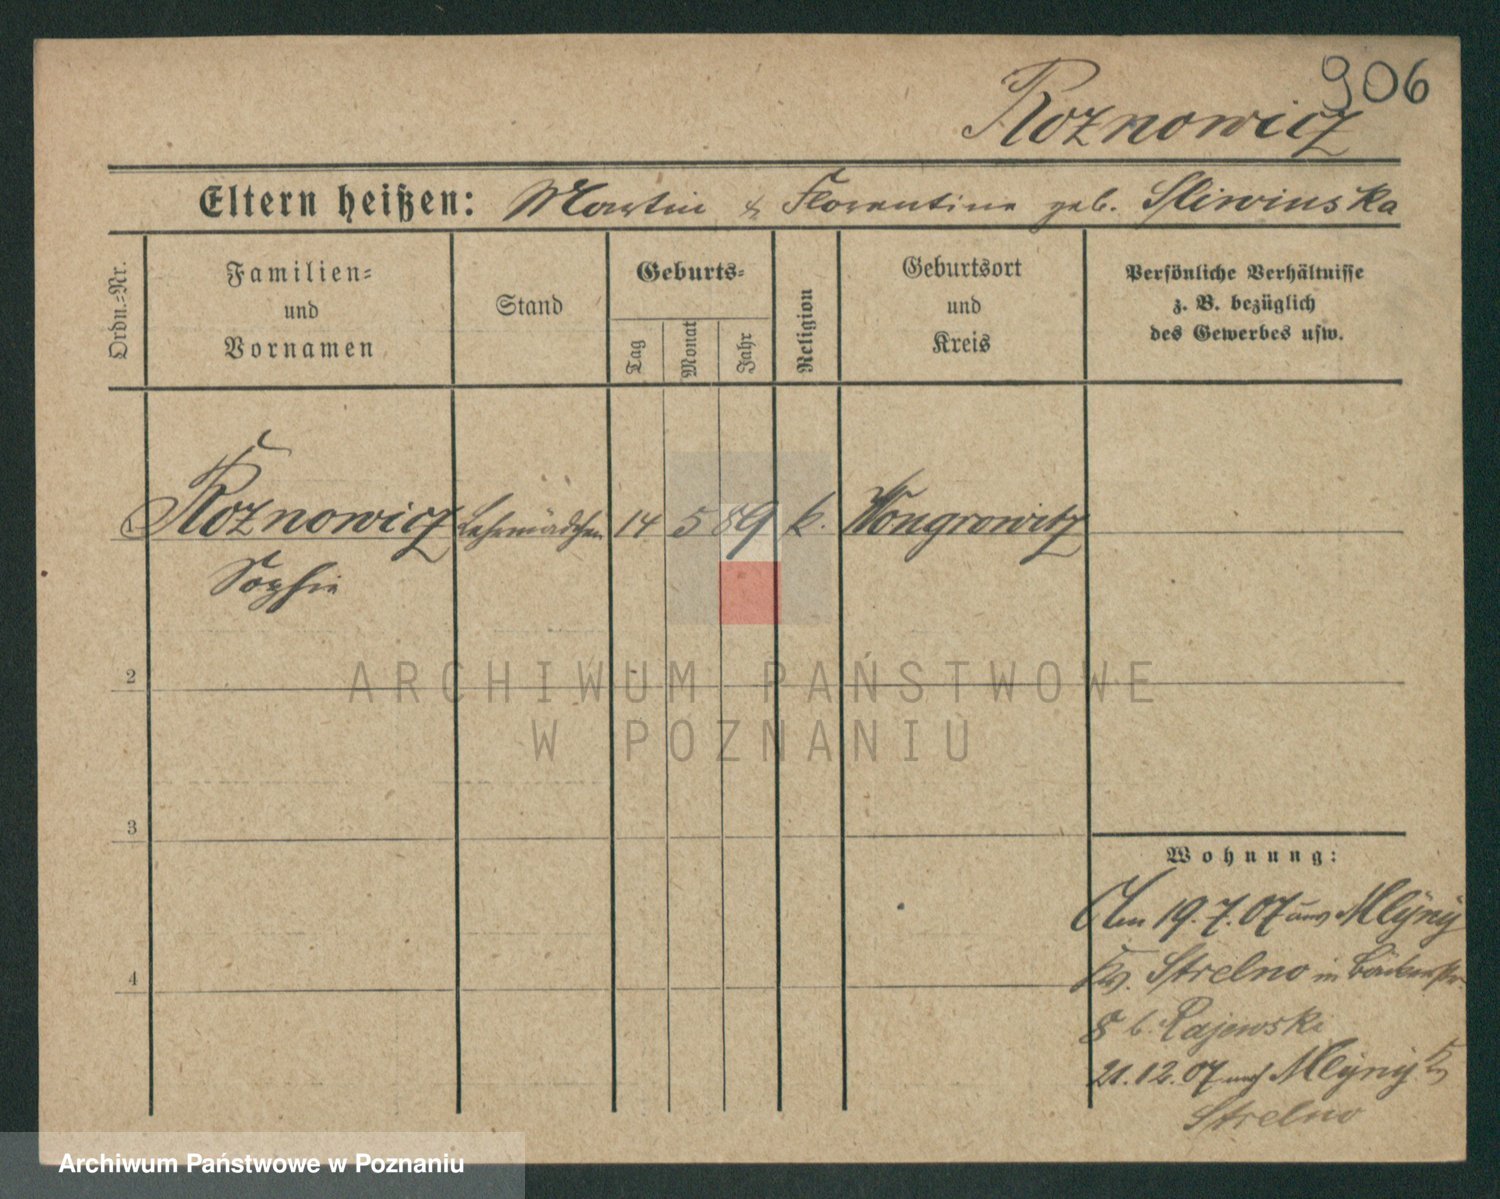 906
Roznowicz
Eltern heißen: Martin & Florentine geb. Sliwinska
Ordn.-Nr.
Familien-
und
Vornamen
Stand
Geburts-
Tag
Monat
Jahr
Religion
Geburtsort
und
Kreis
Persönliche Verhältnisse
z. B. bezüglich
des Gewerbes usw.
1 Roznowicz Lehrmädchen 14 5 89 k. Wongrowitz
Sophie
2
ARCHIWUM PAŃSTWOWE
W POZNANIU
3
Wohnung:
Am 19.7.07 aus Mlyny
Kr. Strelno in
4
8 b. Rajewski
21.12.07 nach Mlyny Kr
Strelno
Archiwum Państwowe w Poznaniu